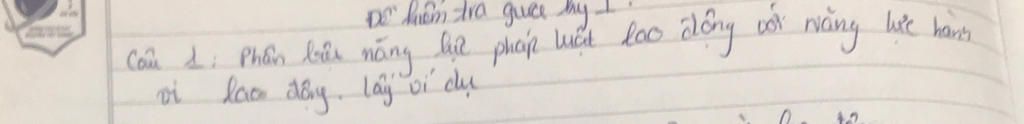 Đề kiểm tra giữa kỳ 1
Câu 1: Phân biệt năng lực pháp luật lao động với năng lực hành
vi lao động. lấy ví dụ